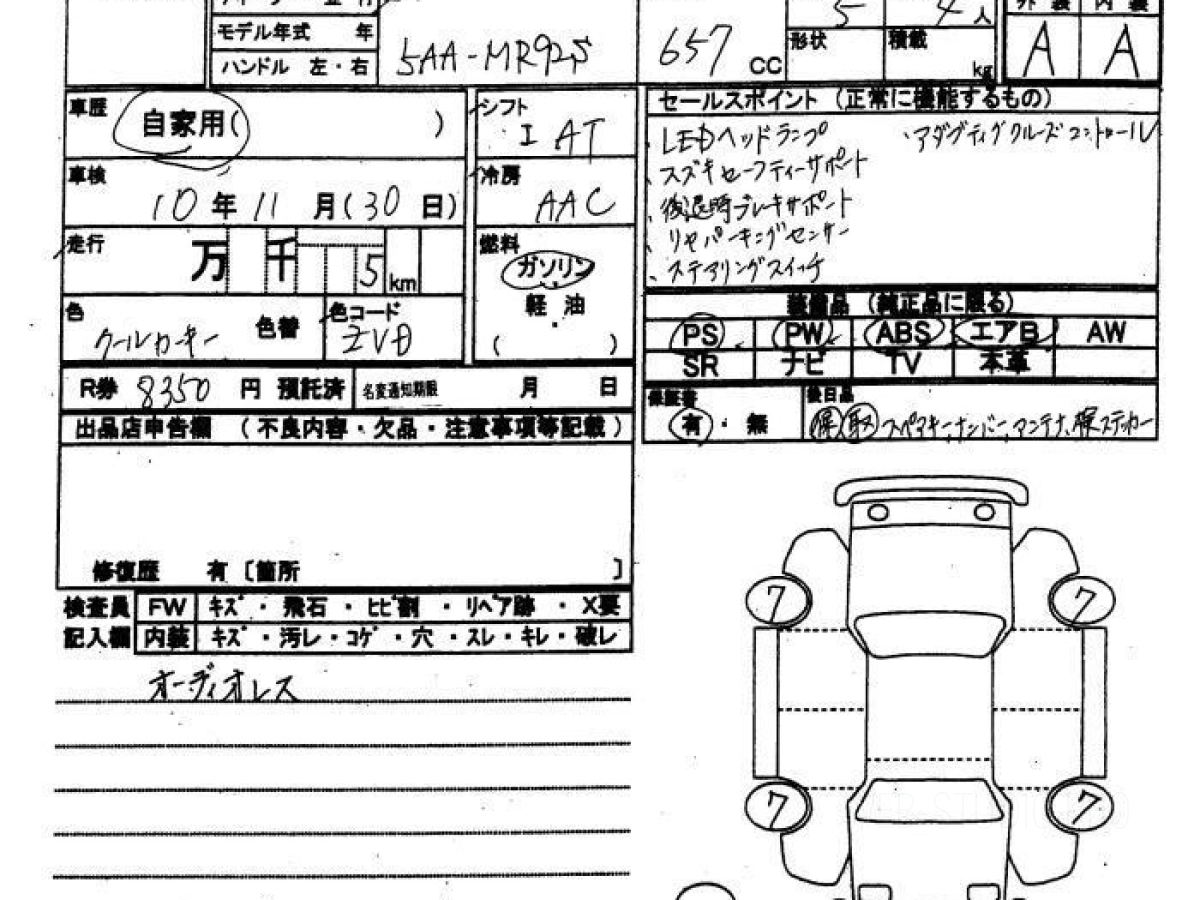 5 4人
モデル年式 年
ハンドル 左・右
5AA-MR92S
657 CC
形状
積載 kg
外装 内装
A A
車歴 自家用( )
シフト I AT
車検 10年11月(30日)
冷房 AAC
走行 万 千 5 km
燃料 ガソリン
軽・油
( )
色 クールカーキー 色替
色コード ZVD
R券 8350 円 預託済 名変通知期限 月 日
出品店申告欄 (不良内容・欠品・注意事項等記載)
修復歴 有〔箇所 〕
検査員記入欄
FW キズ・飛石・ヒビ割・リペア跡・X要
内装 キズ・汚レ・コゲ・穴・スレ・キレ・破レ
オーディオレス
セールスポイント(正常に機能するもの)
、LEDヘッドランプ 、アダプティブクルーズコントロール
、スズキセーフティーサポート
、後退時ブレーキサポート
、リヤパーキングセンサー
、ステアリングスイッチ
装備品(純正品に限る)
PS PW ABS エアB AW
SR ナビ TV 本革
保証書 有・無
後日品 保 取 スペアキー、ナンバー、アンテナ、保ステッカー
7 7
7 7